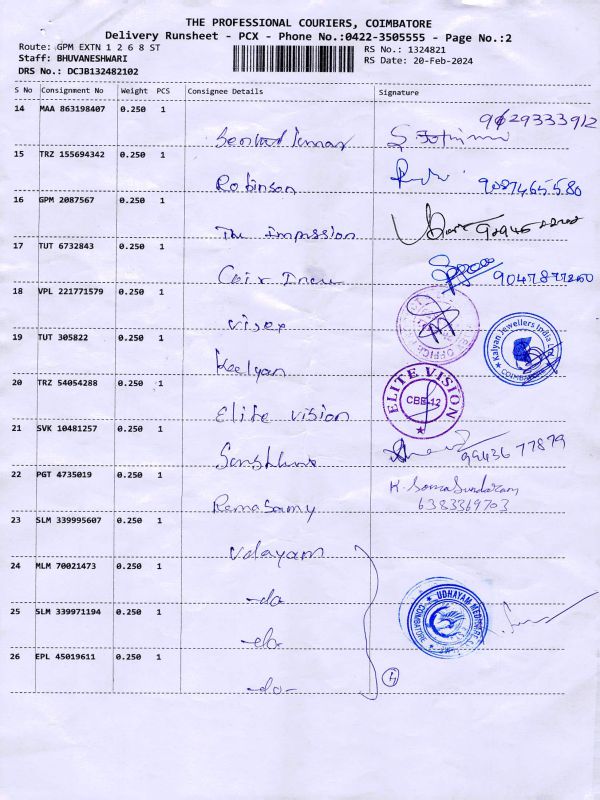 THE PROFESSIONAL COURIERS, COIMBATORE
Delivery Runsheet - PCX - Phone No.:0422-3505555 - Page No.:2
Route: GPM EXTN 1 2 6 8 ST
RS No.: 1324821
Staff: BHUVANESHWARI
RS Date: 20-Feb-2024
DRS No.: DCJB132482102
S No Consignment No Weight PCS Consignee Details Signature
14 MAA 863198407 0.250 1
9629333912
15 TRZ 155694342 0.250 1
Robinson 9087465580
16 GPM 2087567 0.250 1
The Impression
17 TUT 6732843 0.250 1
9047877250
18 VPL 221771579 0.250 1
OFFICE
19 TUT 305822 0.250 1
Kalyan Jewellers India Ltd
COIMBATORE
Kalyan
20 TRZ 54054288 0.250 1
ELITE VISION
CBE-12
Elite vision
21 SVK 10481257 0.250 1
99436 77879
22 PGT 4735019 0.250 1
K. Somasundaram
6383369703
Ramasamy
23 SLM 339995607 0.250 1
Udayam
24 MLM 70021473 0.250 1
UDHAYAM
-do-
25 SLM 339971194 0.250 1
-do-
26 EPL 45019611 0.250 1
-do- 4